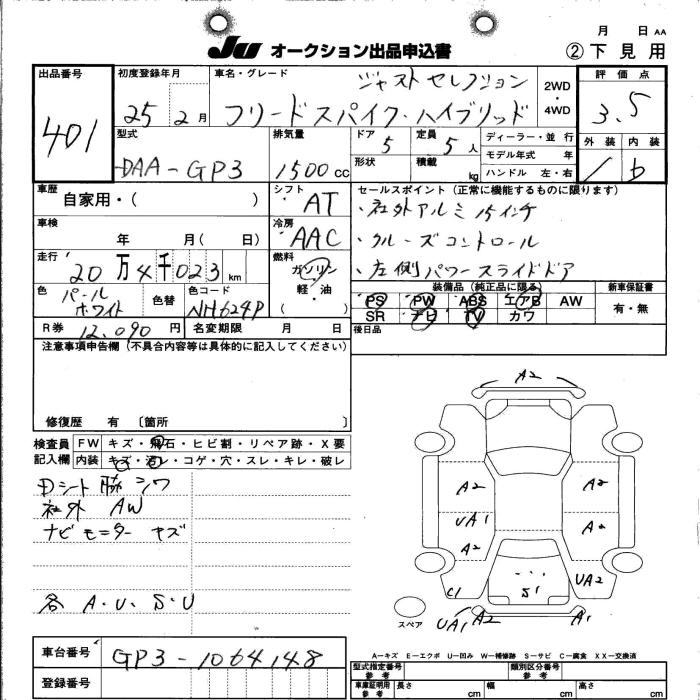 月 日 AA
JU オークション出品申込書
② 下見用
出品番号
401
初度登録年月
25 2 月
車名・グレード
ジャストセレクション
フリードスパイク・ハイブリッド
2WD
・
4WD
評価点
3.5
外装 内装
b
型式
DAA-GP3
排気量
1500 cc
ドア
5
定員
5 人
形状
積載
kg
ディーラー・並行
モデル年式 年
ハンドル 左・右
車歴
自家用・( )
シフト
AT
セールスポイント (正常に機能するものに限ります)
・社外アルミ15インチ
・クルーズコントロール
・左側パワースライドドア
車検
年 月( 日)
冷房
AAC
走行
20万4千023 km
燃料
ガソリン
・
軽・油
( )
色
パール
ホワイト
色替
色コード
NH624P
装備品 (純正品に限る)
PS PW ABS エアB AW
SR ナビ TV カワ
新車保証書
有・無
R券 12,090 円
名変期限 月 日
後日品
注意事項申告欄 (不具合内容等は具体的に記入してください)
修復歴 有 〔箇所 〕
検査員
記入欄
FW キズ・飛石・ヒビ割・リペア跡・X要
内装 キズ・汚レ・コゲ・穴・スレ・キレ・破レ
Dシート脇シワ
社外 AW
ナビモニター キズ
各 A・U、S・U
A2
A2
A2
UA1
A2
A2
C1
S1
UA2
スペア
UA1
A2
A1
A-キズ E-エクボ U-凹み W-補修跡 S-サビ C-腐食 XX-交換済
車台番号
GP3-1064148
登録番号
型式指定番号
参考
類別区分番号
参考
車庫証明用
参考
長さ cm
幅 cm
高さ cm